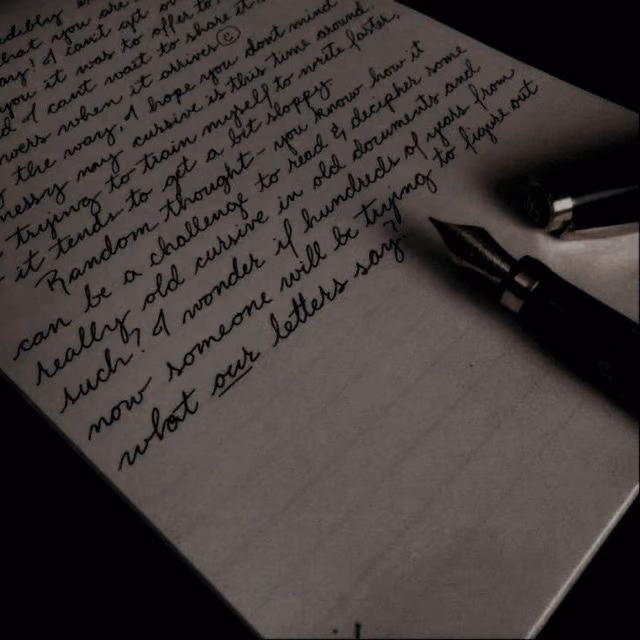 I can't wait to
when it arrives!
the way, I hope you dont mind
messy my cursive is this time around
trying to train myself to write faster
it tend to get a bit sloppy
Random thought - you know how it
can be a challenge to read & decipher some
really old cursive in old documents and
such? I wonder if hundreds of years from
now someone will be trying to figure out
what our letters say